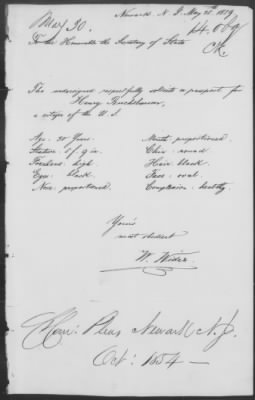 Newark N. J. May 28th 1859
May 30.
To the Honorable the Secretary of State
The undersigned respectfully solicits a passport for
Henry
a citizen of the U. S.
Age. 30 Years.
Stature 5 f 9 in.
Forehead. high
Eyes. black.
Nose. proportioned.
Mouth. proportioned.
Chin. round.
Hair. black
Face. oval.
Complexion. healthy.
Yours
most obedient
W.
Com: Pleas Newark N. J.
Oct: 1854 —